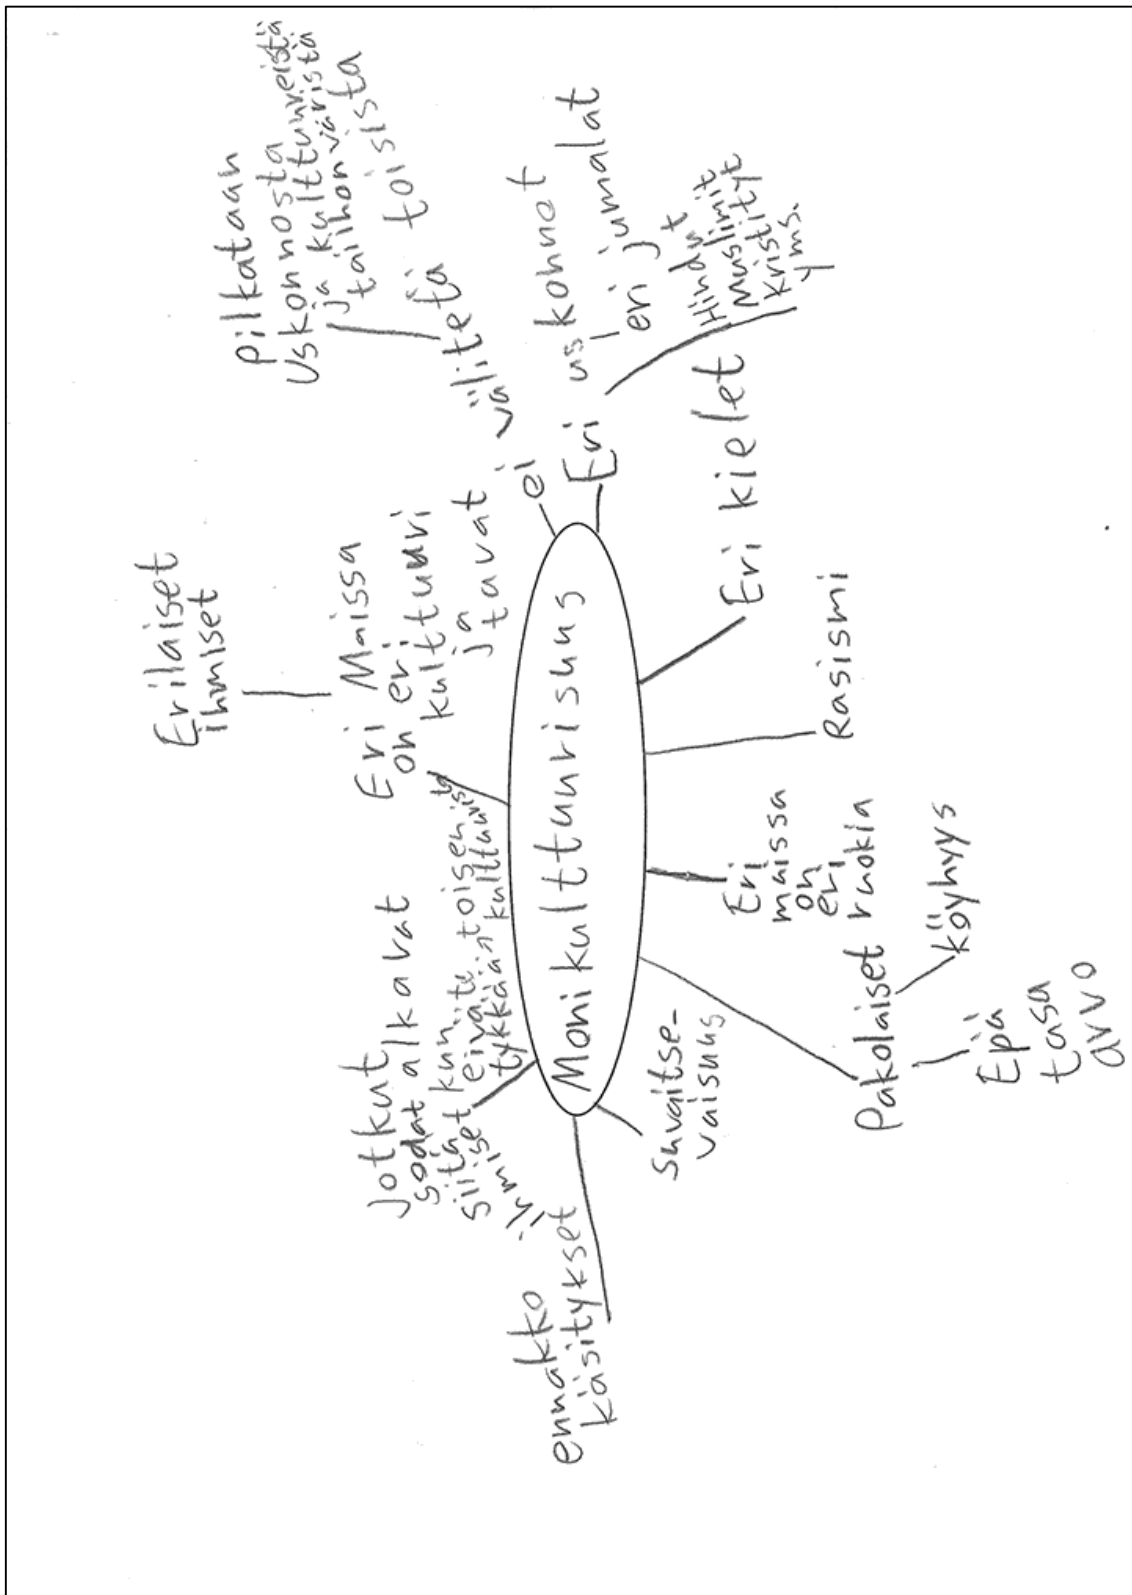 Monikulttuurisuus
ennakko
käsitykset
Jotkut
sodat alkavat
siitä kun
ihmiset eivät toisen
tykkään kulttuurista
Eri Maissa
on eri
kulttuuri
ja
tavat
Erilaiset
ihmiset
ei välitetä toisista
Pilkataan
Uskonnosta
ja kulttuureista
taihonväristä
Eri uskonnot
eri jumalat
Hindut
Muslimit
kristityt
yms.
Eri kielet
Rasismi
Eri
maissa
on
eri
ruokia
Pakolaiset
köyhyys
Epä
tasa
arvo
Suvaitse-
vaisuus